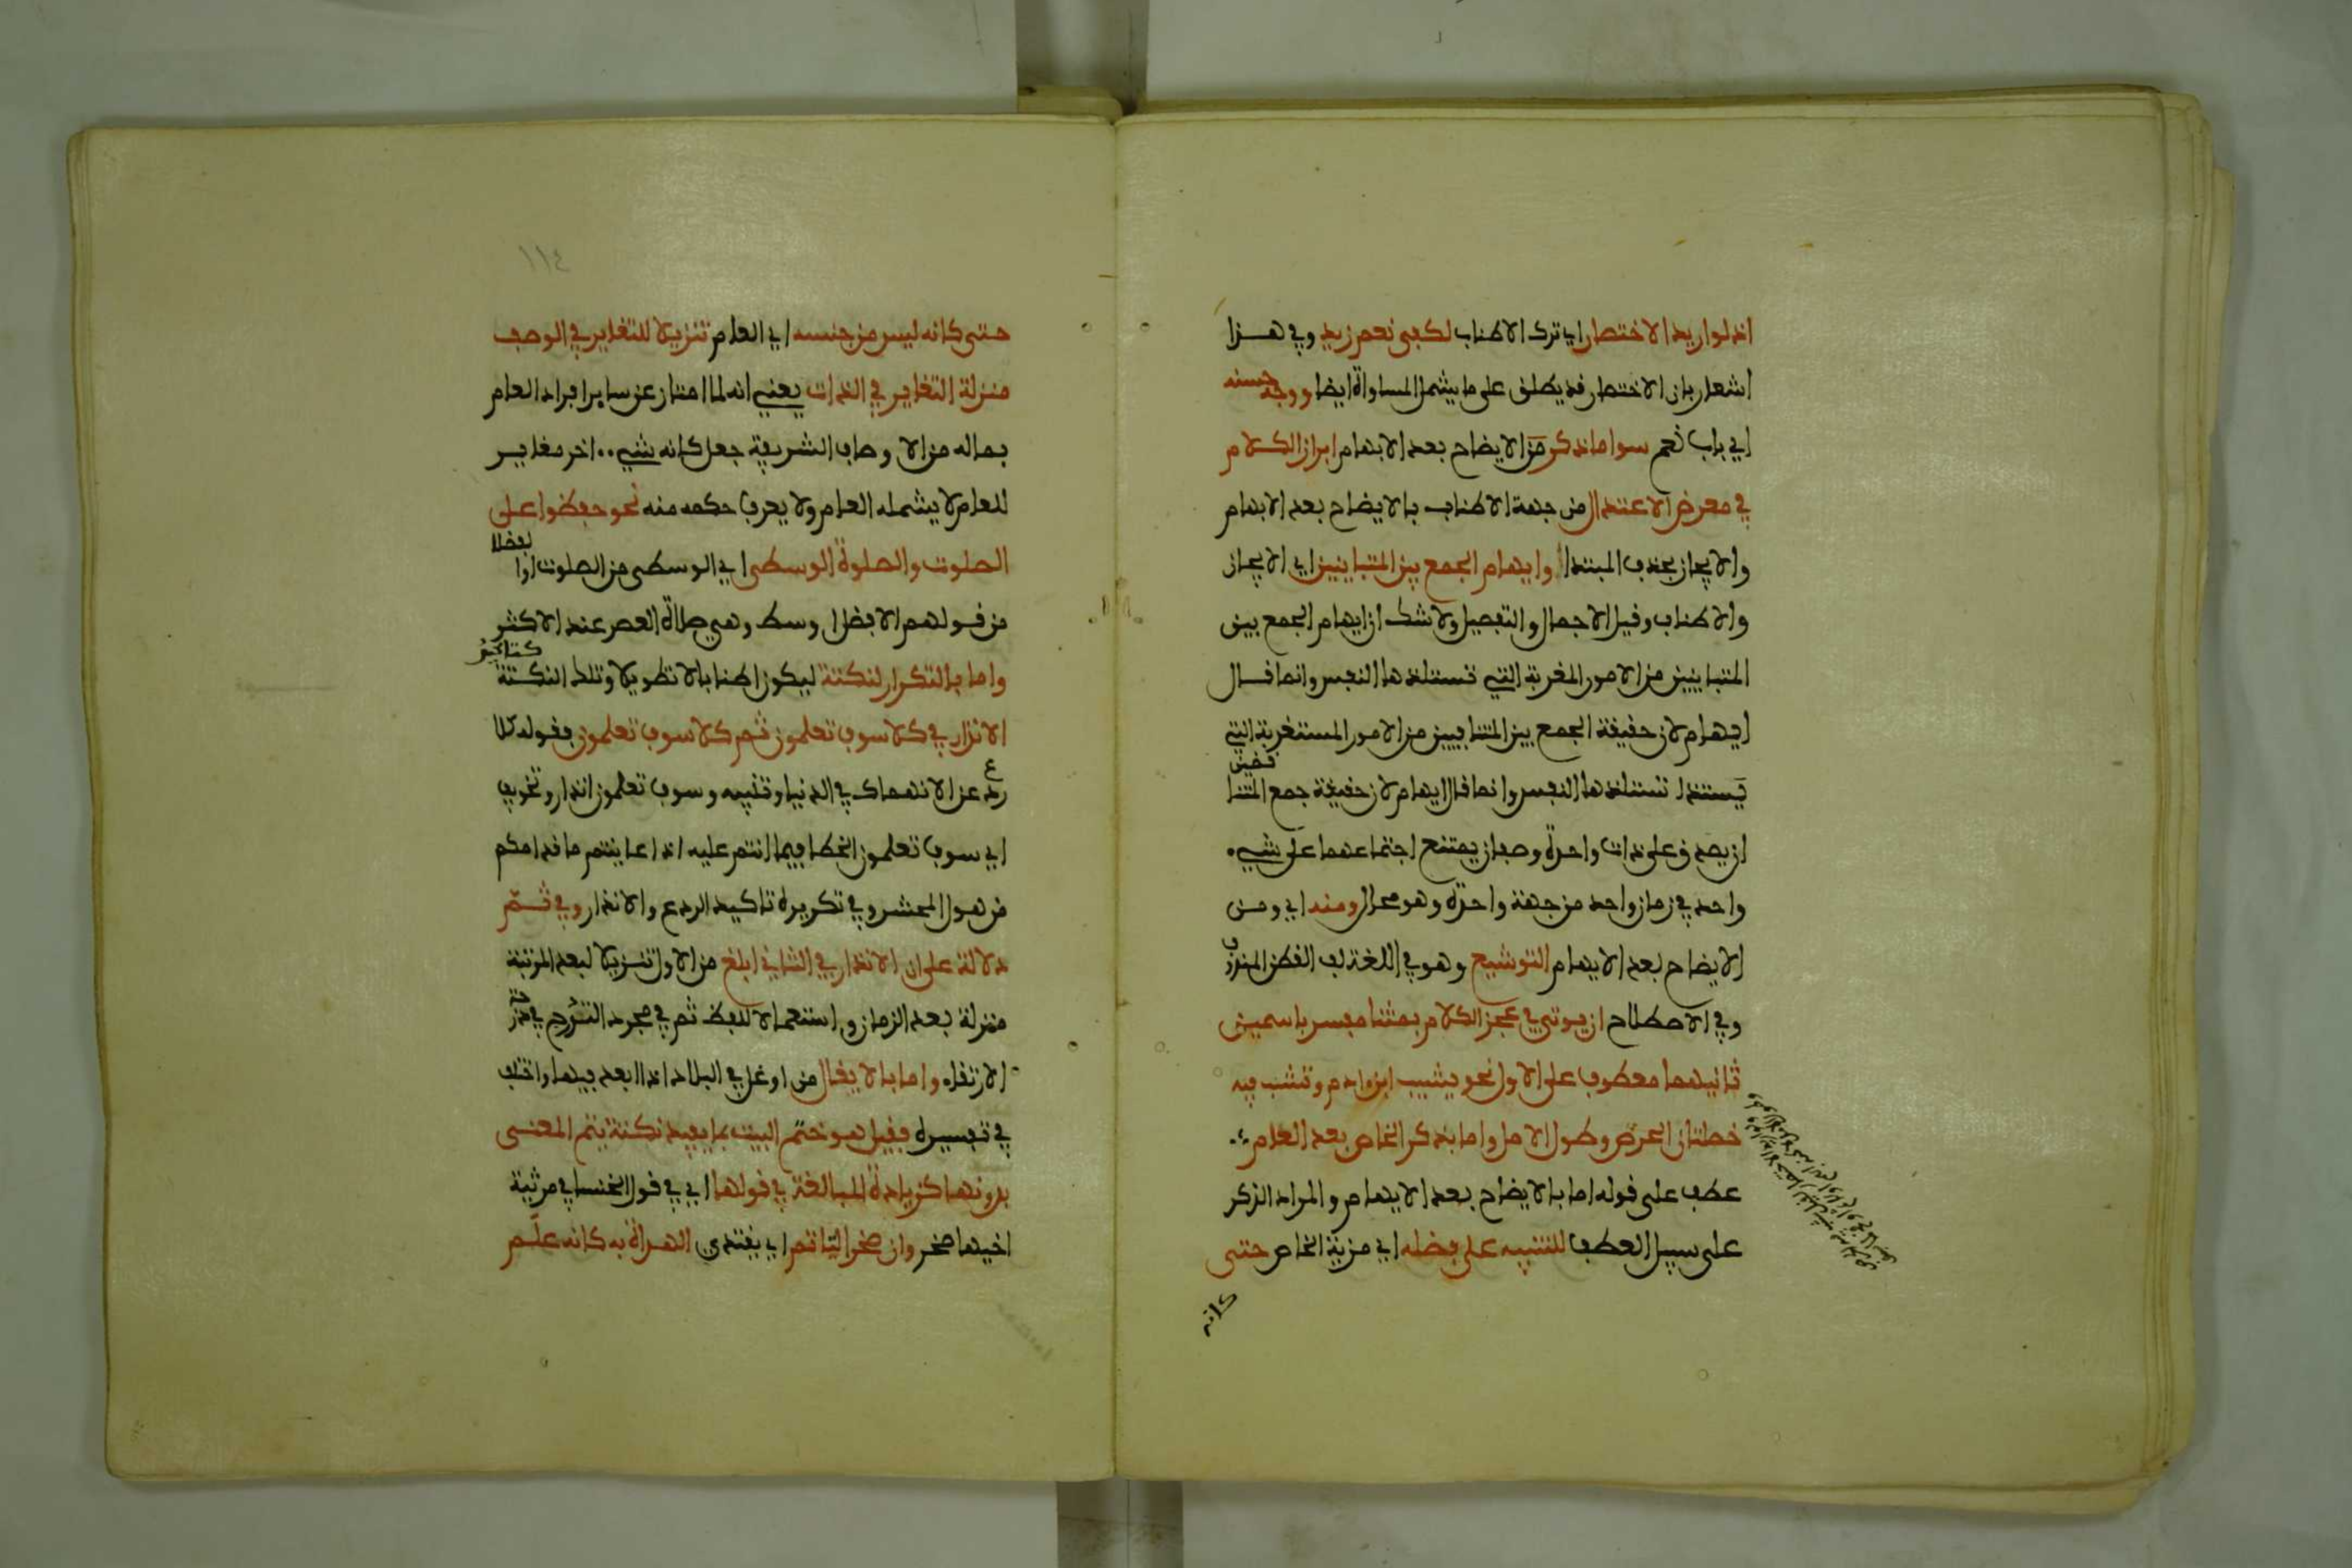 اذ لو اريد الاختصار اي ترك الاطناب لكفى نعم زيد وفي هذا
اشعار بان الاختصار قد يطلق على ما يشمل المساواة ايضا ووجه حسنه
اي باب نعم سوا ما ذكر من الايضاح بعد الابهام ابراز الكلام
في معرض الاعتدال من جهة الاطناب بالايضاح بعد الابهام
والايجاز بحذف المبتدا وايهام الجمع بين المتباينين اي الايجاز
والاطناب وقيل الاجمال والتفصيل ولا شك ان ايهام الجمع بين
المتباينين من الامور المغربة التي تستلذها النفس وانما قال
ايهام لان حقيقة الجمع بين المتنافيين من الامور المستغربة التي
تستلذها النفس وانما قال ايهام لان حقيقة جمع المتنا
قضين
ان يصدق على ذات واحدة وصفان يمتنع اجتماعهما على شيء
واحد في زمان واحد من جهة واحدة وهو محال ومنه اي ومن
الايضاح بعد الابهام التوشيع وهو في اللغة لف القطن المندوف
وفي الاصطلاح ان يوتى في عجز الكلام بمثنا مفسر باسمين
ثانيهما معطوف على الاول نحو يشيب ابن ادم وتشب فيه
خصلتان الحرص وطول الامل واما بذكر الخاص بعد العام
عطف على قوله اما بالايضاح بعد الابهام والمراد الذكر
على سبيل العطف للتنبيه على فضله اي مزية الخاص حتى
كانه
١١٤
حتى كانه ليس من جنسه اي العام تنزيلا للتغاير في الوصف
منزلة التغاير في الذات يعني انه لما امتاز عن ساير افراد العام
بماله من الاوصاف الشريفة جعل كانه شيء اخر مغاير
للعام لا يشمله العام ولا يعرف حكمه منه نحو حفظوا على
الصلوت والصلوة الوسطى اي الوسطى من الصلوت او
الفضلا
من قولهم الافضل اوسط وهي صلاة العصر عند الاكثر
واما بالتكرار لنكتة ليكون اطنابا لا تطويلا وتلك النكتة
كتاكيد
الانذار في كلا سوف تعلمون ثم كلا سوف تعلمون فقوله كلا
ردع عن الانهماك في الدنيا وتنبيه وسوف تعلمون انذار وتخويف
اي سوف تعلمون الخطا فيما انتم عليه اذا عاينتم ما قدامكم
من هول المحشر وفي تكريره تاكيد الردع والانذار وفي ثم
دلالة على ان الانذار في الثاني ابلغ من الاول تنزيلا لبعد المرتبة
منزلة بعد الزمان واستعمالا للفظ ثم في مجرد التدرج في درج
الارتقاء واما بالايغال من اوغل في البلاد اذا ابعد فيها واختلف
في تفسيره فقيل هو ختم البيت بما يفيد نكتة يتم المعنى
بدونها كزيادة المبالغة في قولها اي في قول الخنسا في مرثية
اخيها صخر وان صخرا لتاتم اي يقتدي الهداة به كانه علم